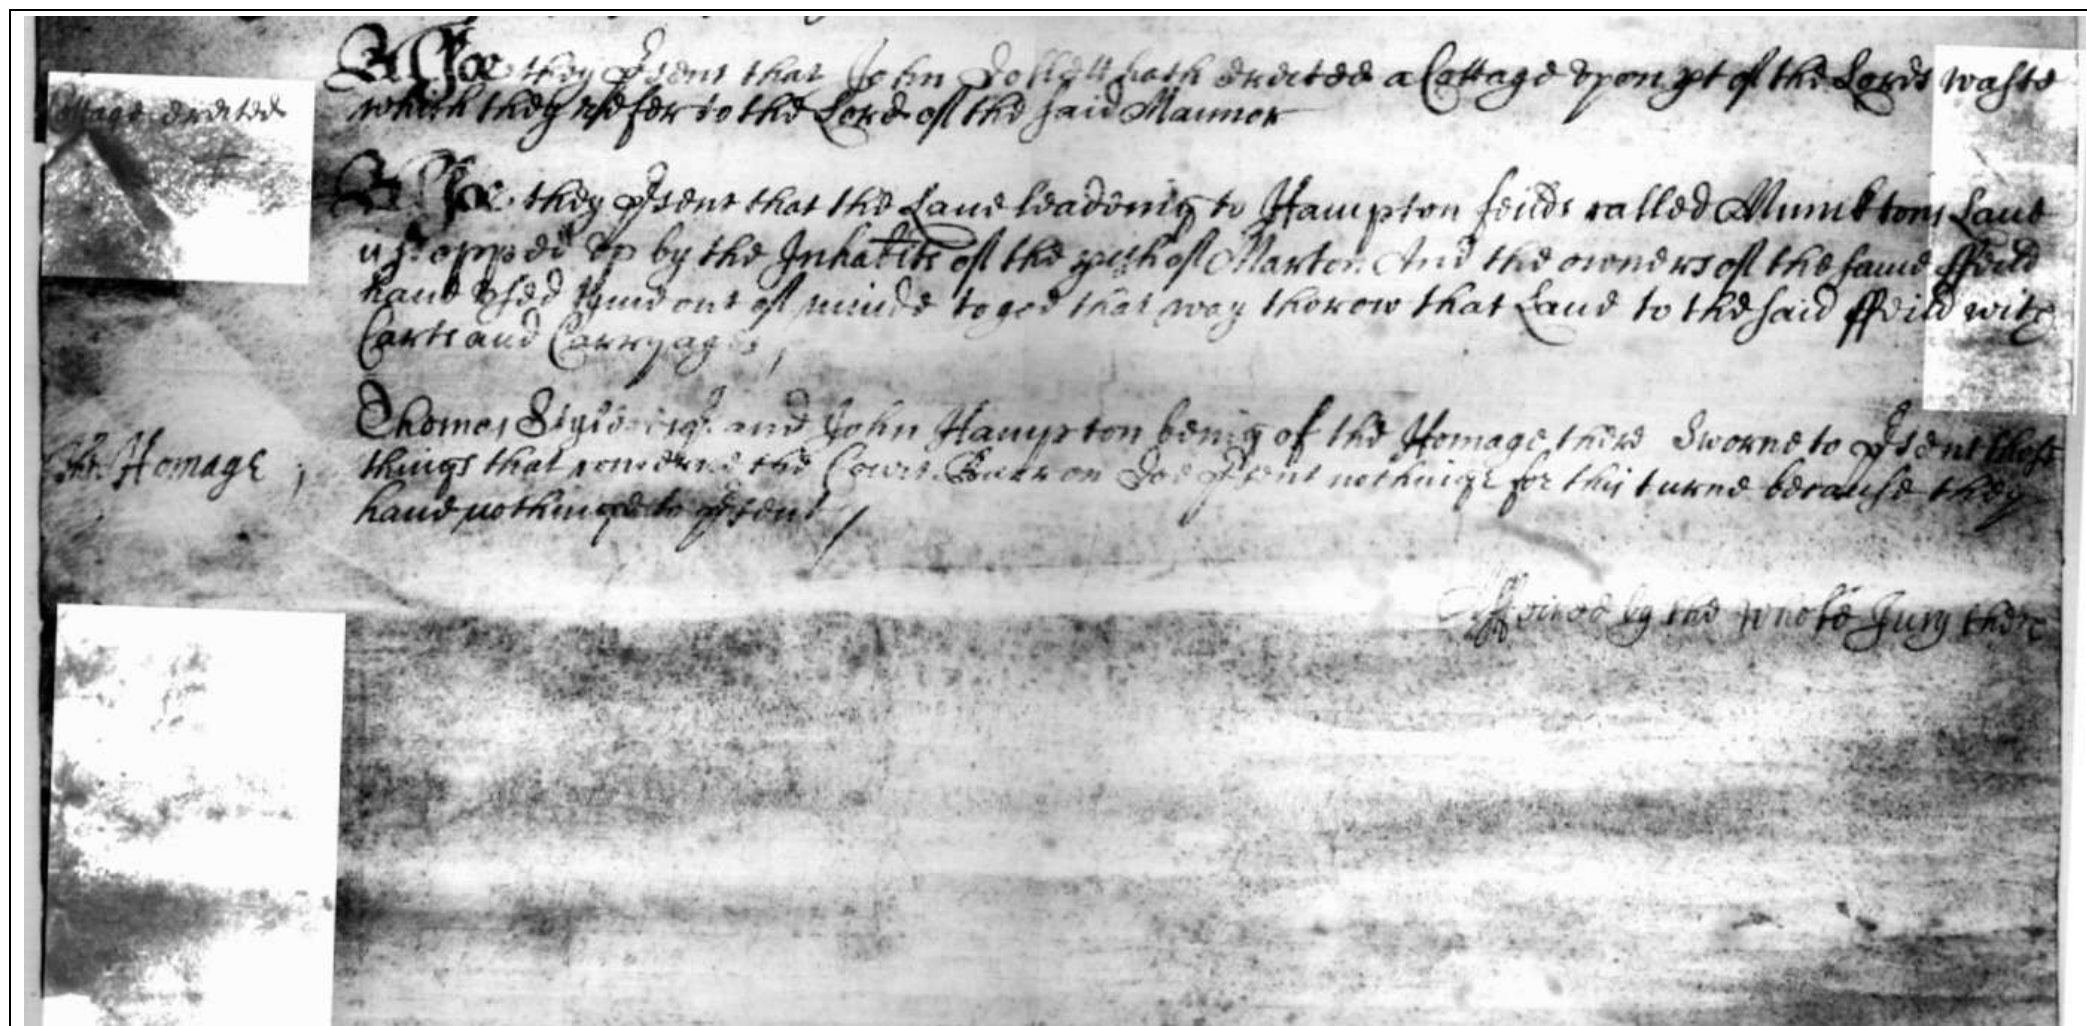 Cottage erected
Alsoe they psent that John Dollett hath erected a Cottage vpon pt of the Lords waste
which they refer to the Lord of the said Mannor
Alsoe they psent that the Lane leadeinig to Hampton feild called Lane
is stopped vp by the Inhatits of the pish of Marton And the owners of the same ffeild
haue vsed tyme out of minde to goe that way thorow that Lane to the said ffeild with
Carts and Carryages /
The Homage ;
Thomas and John Hampton being of the Homage there Sworne to psent those
things that concerne the Court Barron doe psent nothinge for this turne because they
haue nothinge to psent /
Affeired by the whole Jury there